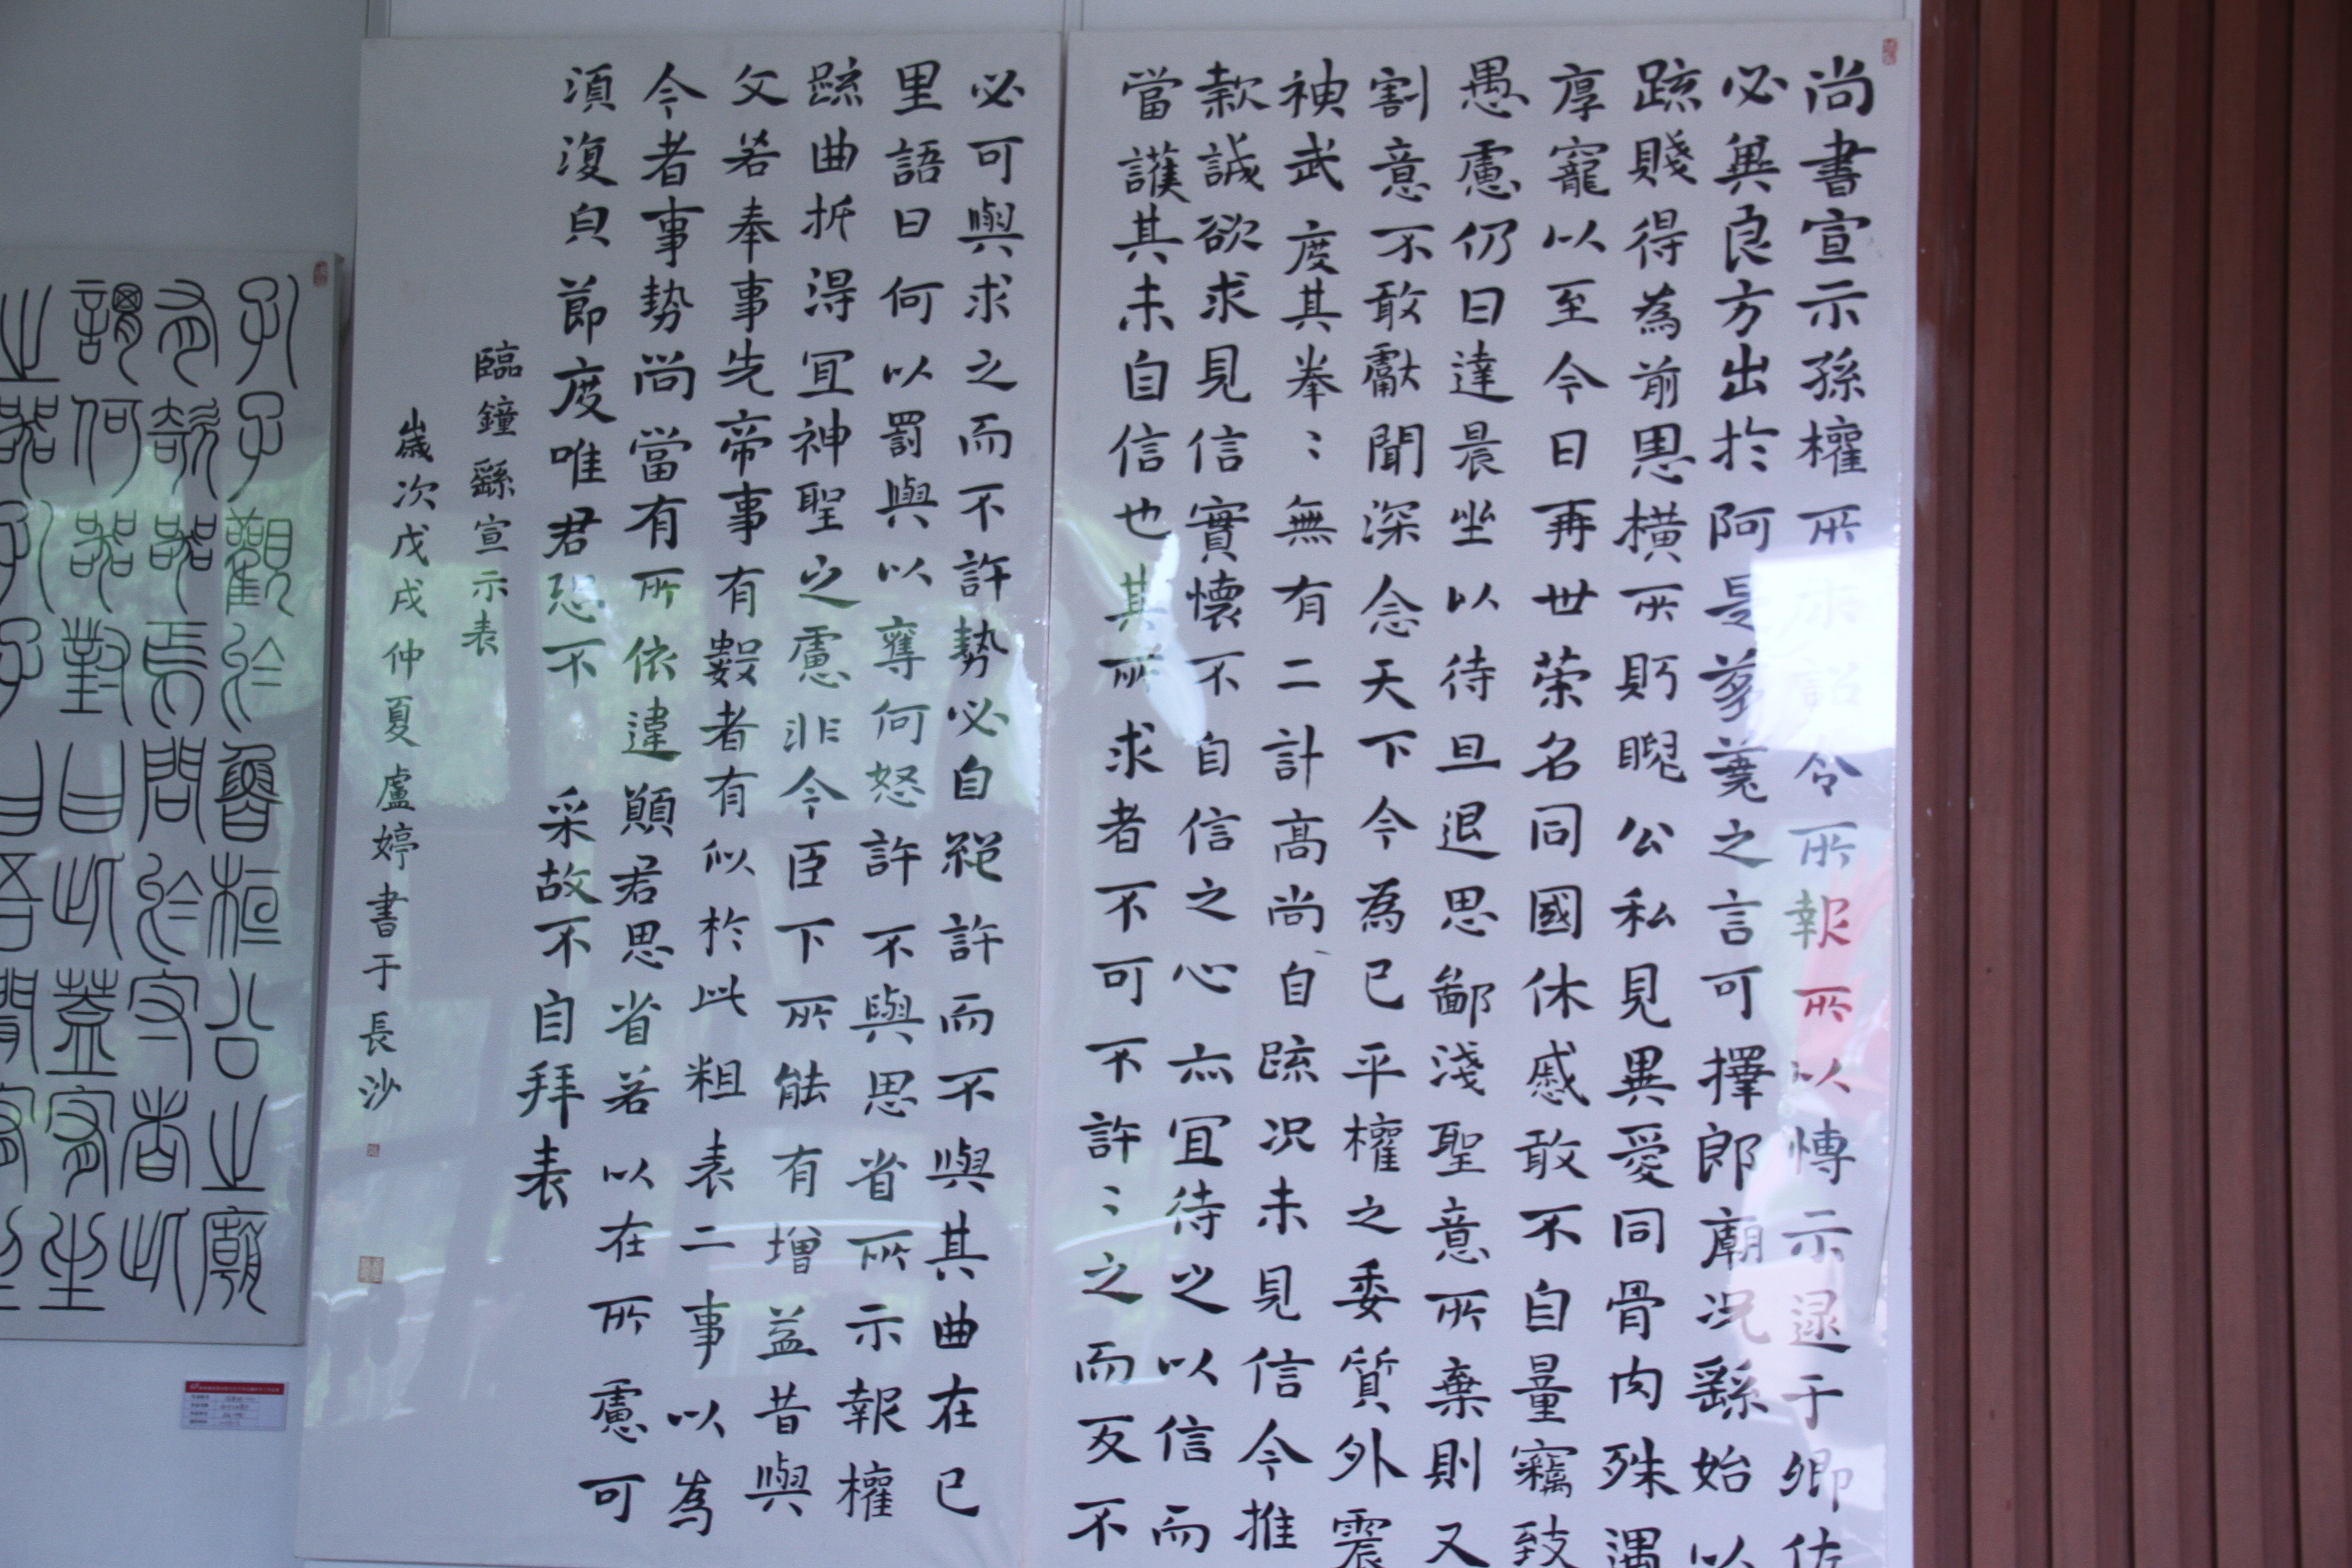 尚書宣示孫權所求詔令所報所以博示逮于卿佐
必冀良方出於阿是芻蕘之言可擇郎廟況繇始以
疏賤得為前恩橫所盼睨公私見異愛同骨肉殊遇
厚寵以至今日再世榮名同國休慼敢不自量竊致
愚慮仍日達晨坐以待旦退思鄙淺聖意所棄則又
割意不敢獻聞深念天下今為已平權之委質外震
神武度其拳〻無有二計高尚自疏況未見信今推
款誠欲求見信實懷不自信之心亦宜待之以信而
當護其未自信也其所求者不可不許〻之而反不
必可與求之而不許勢必自絕許而不與其曲在己
里語曰何以罰與以奪何以怒許不與思省所示報權
疏曲折得宜神聖之慮非今臣下所能有增益昔與
文若奉事先帝事有數者有似於此粗表二事以為
今者事勢尚當有所依違願君思省若以在所慮可
須復貞節度唯君恐不采故不自拜表
臨鐘繇宣示表
歲次戊戌仲夏盧婷書于長沙
孔子觀於魯桓公之廟
有欹器焉問於守者此
謂何器對曰此蓋宥坐
之器孔子曰吾聞宥坐